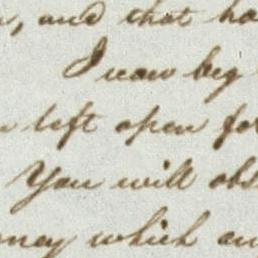 , and that ha
I now beg
left open for
You will obs
ney which an